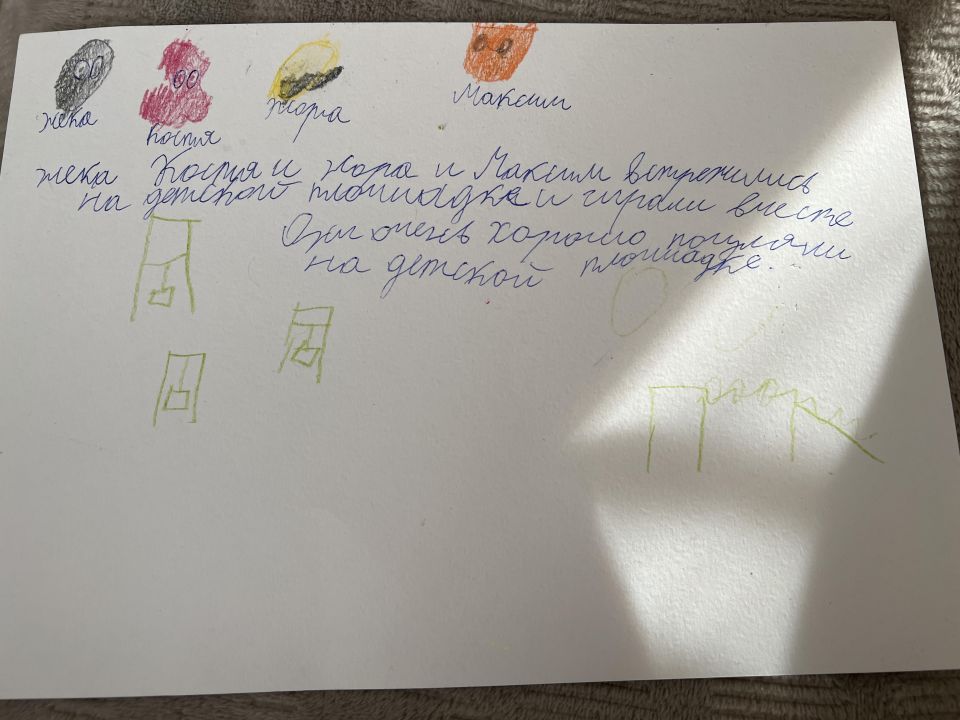 Жека
Костя
Жора
Максим
Жека Костя и Жора и Максим встретились
на детской площадке и играли вместе
Они очень хорошо погуляли
на детской площадке.